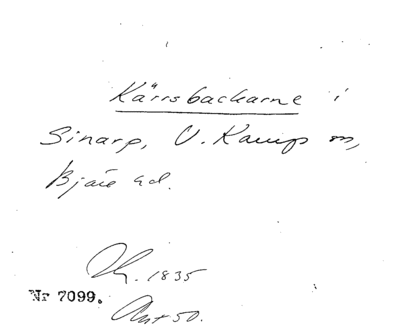 Kärrsbackarne i
Sinarp, V. Karup sn,
Bjäre hd.
1835
Nr 7099.
Ant 50.